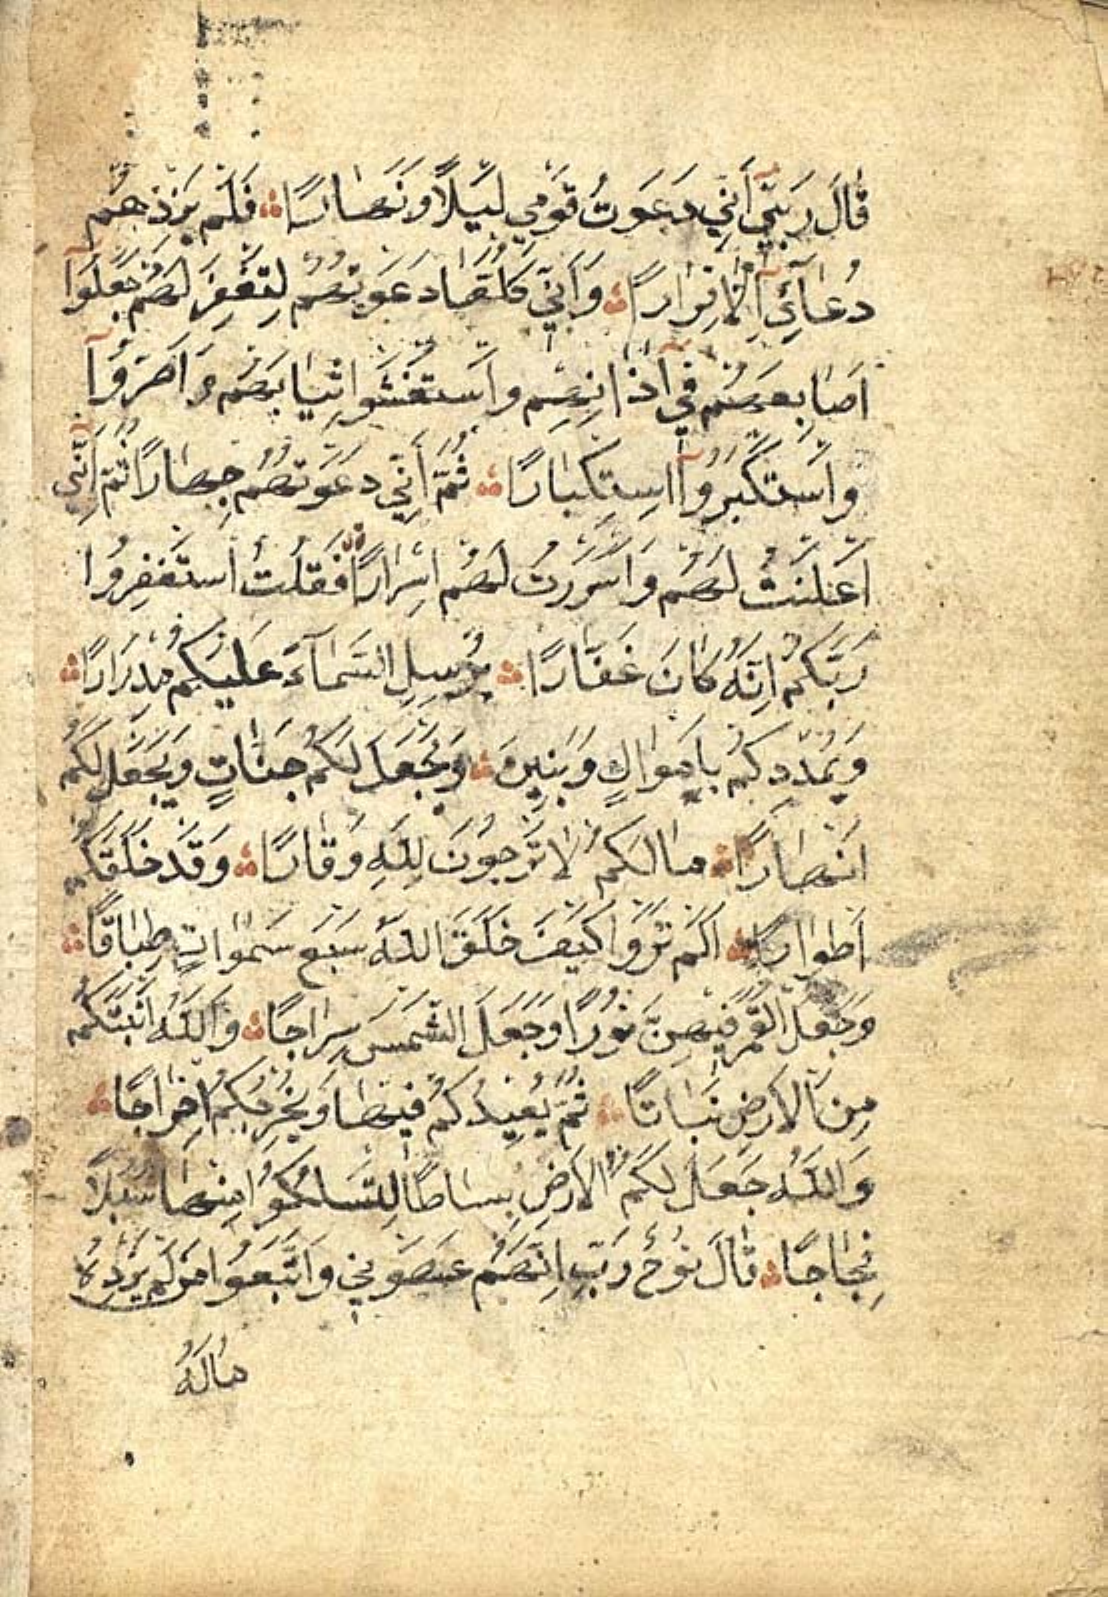 قَالَ رَبِّ إِنِّي دَعَوْتُ قَوْمِي لَيْلًا وَنَهَارًا فَلَمْ يَزِدْهُمْ
دُعَائِي إِلَّا فِرَارًا وَإِنِّي كُلَّمَا دَعَوْتُهُمْ لِتَغْفِرَ لَهُمْ جَعَلُوا
أَصَابِعَهُمْ فِي آذَانِهِمْ وَاسْتَغْشَوْا ثِيَابَهُمْ وَأَصَرُّوا
وَاسْتَكْبَرُوا اسْتِكْبَارًا ثُمَّ إِنِّي دَعَوْتُهُمْ جِهَارًا ثُمَّ إِنِّي
أَعْلَنْتُ لَهُمْ وَأَسْرَرْتُ لَهُمْ إِسْرَارًا فَقُلْتُ اسْتَغْفِرُوا
رَبَّكُمْ إِنَّهُ كَانَ غَفَّارًا يُرْسِلِ السَّمَآءَ عَلَيْكُمْ مِدْرَارًا
وَيُمْدِدْكُمْ بِأَمْوَالٍ وَبَنِينَ وَيَجْعَلْ لَكُمْ جَنَّاتٍ وَيَجْعَلْ لَكُمْ
أَنْهَارًا مَا لَكُمْ لَا تَرْجُونَ لِلَّهِ وَقَارًا وَقَدْ خَلَقَكُمْ
أَطْوَارًا أَلَمْ تَرَوْا كَيْفَ خَلَقَ اللَّهُ سَبْعَ سَمَوَاتٍ طِبَاقًا
وَجَعَلَ الْقَمَرَ فِيهِنَّ نُورًا وَجَعَلَ الشَّمْسَ سِرَاجًا وَاللَّهُ أَنْبَتَكُمْ
مِنَ الْأَرْضِ نَبَاتًا ثُمَّ يُعِيدُكُمْ فِيهَا وَيُخْرِجُكُمْ إِخْرَاجًا
وَاللَّهُ جَعَلَ لَكُمُ الْأَرْضَ بِسَاطًا لِتَسْلُكُوا مِنْهَا سُبُلًا
فِجَاجًا قَالَ نُوحٌ رَبِّ إِنَّهُمْ عَصَوْنِي وَاتَّبَعُوا مَنْ لَمْ يَزِدْهُ
مَالُهُ